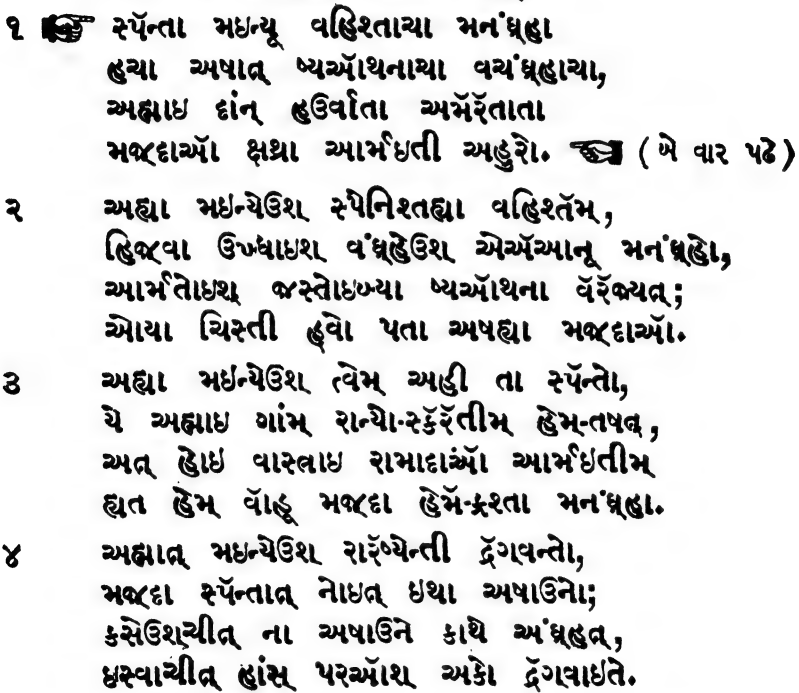 ૧ ☞ સ્પૅન્તા મઇન્યૂ વહિશ્તાચા મનંઘ્હા
હચા અષાત્ ષ્યઑથનાચા વચંઘ્હાચા,
અહ્માઇ દાંન્ હઉર્વાતા અમૅરૅતાતા
મજ઼્દાઑ ક્ષથ્રા આર્મઇતી અહુરો. ☜ (બે વાર પઢે)
૨ અહ્યા મઇન્યેઉશ્ સ્પેનિશ્તહ્યા વહિશ્તૅમ્,
હિજ઼્વા ઉખ્ધાઇશ્ વંઘ્હેઉશ્ એઍઆનૂ મનંઘ્હો,
આર્મતોઇશ્ જ઼સ્તોઇબ્યા ષ્યઑથના વૅરૅજ઼્યત્;
ઓયા ચિસ્તી હ્વો પતા અષહ્યા મજ઼્દાઑ.
૩ અહ્યા મઇન્યેઉશ્ ત્વેમ્ અહી તા સ્પૅન્તો,
યે અહ્માઇ ગાંમ્ રાન્યો-સ્કૅરૅતીમ્ હેમ્-તષત્,
અત્ હોઇ વાસ્ત્રાઇ રામાદાઑ આર્મઇતીમ્
હ્યત હેમ્ વૉહૂ મજ઼્દા હેમૅ-ફ્રશ્તા મનંઘ્હા.
૪ અહ્માત્ મઇન્યેઉશ્ રારૅષ્યેન્તી દ્રૅગવન્તો,
મજ઼્દા સ્પૅન્તાત્ નોઇત્ ઇથા અષાઉનો;
કસેઉશ્ચીત્ ના અષાઉને કાથે અંઘ્હત્,
ઇસ્વાચીત્ હાંસ્ પરઑશ્ અકો દ્રૅગવાઇતે.